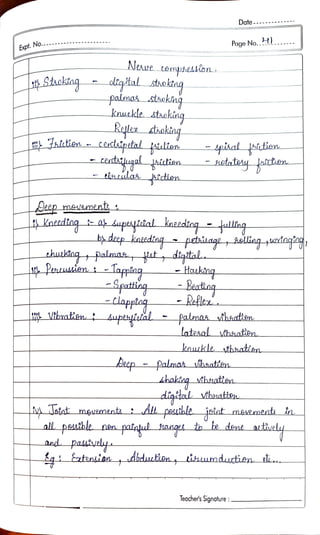 Date..............
Expt. No.....................
Page No. 41
Nerve compression.
i) Stroking - digital stroking
palmar stroking
knuckle stroking
Reflex stroking
ii) Friction - centripetal friction - spiral friction
- centrifugal friction - rotatory friction
- circular friction
Deep movements :
i) Kneeding :- a) superficial kneeding - fulling
b) deep kneeding - petrissage, rolling, wringing,
chucking, palmar, fist, digital.
ii) Percussion : - Tapping - Hacking
- Spatting - Beating
- Clapping - Reflex.
iii) Vibration : superficial - palmar vibration
lateral vibration
knuckle vibration
Deep - palmar vibration
shaking vibration
digital vibration
iv) Joint movements : All possible joint movements in
all possible non painful ranges to be done actively
and passively.
Eg : Extension, Abduction, circumduction etc...
Teacher's Signature :